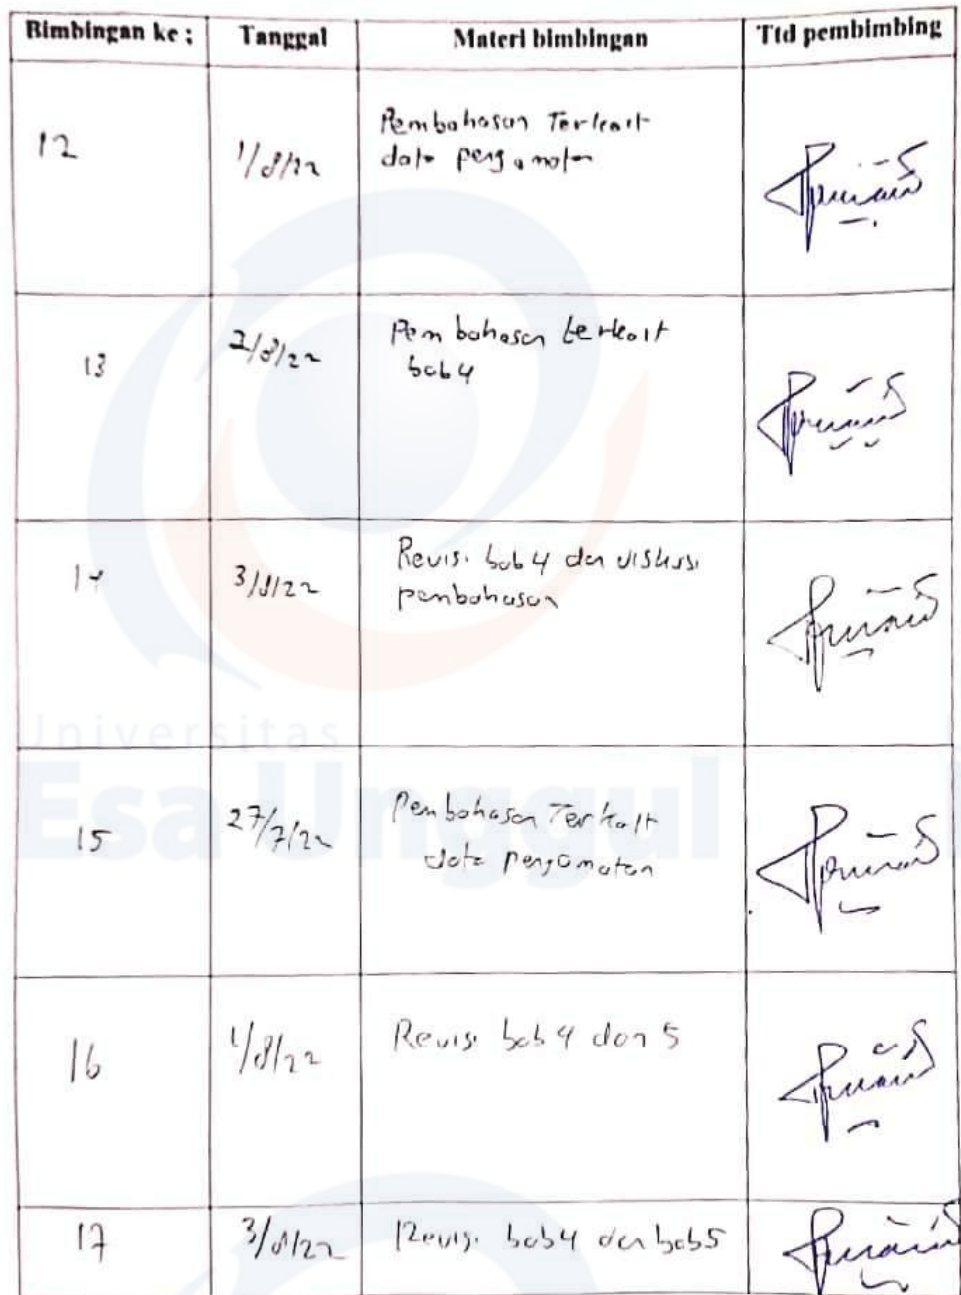 Bimbingan ke : Tanggal Materi bimbingan Ttd pembimbing
12 1/8/22 Pembahasan Terkait
data pengamatan
13 2/8/22 Pembahasan terkait
bab 4
14 3/8/22 Revisi bab 4 dan diskusi
pembahasan
Universitas
Esa Unggul
15 27/7/22 Pembahasan Terkait
data pengamatan
16 1/8/22 Revisi bab 4 dan 5
17 3/8/22 Revisi bab 4 dan bab 5